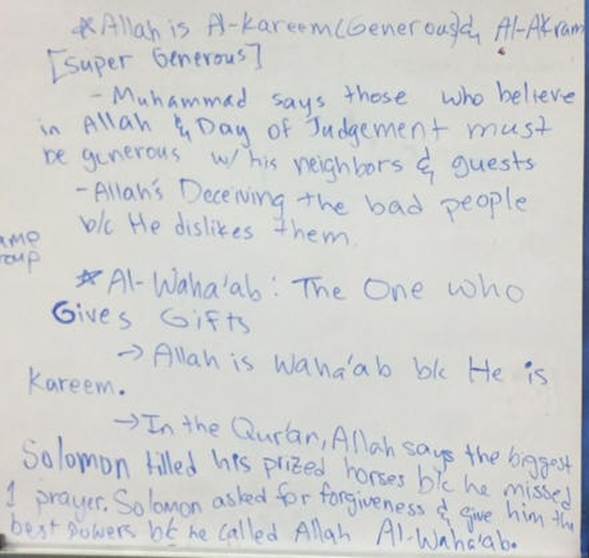 *Allah is Al-Kareem(Generous)& Al-Akram
[Super Generous]
- Muhammad says those who believe
in Allah & Day of Judgement must
be generous w/ his neighbors & guests
- Allah's Deceiving the bad people
b/c He dislikes them.
* Al-Waha'ab: The One who
Gives Gifts
→ Allah is Waha'ab b/c He is
Kareem.
→ In the Qur'an, Allah says the biggest
Solomon killed his prized horses b/c he missed
1 prayer. Solomon asked for forgiveness & give him the
best powers b/c he called Allah Al-Waha'ab.